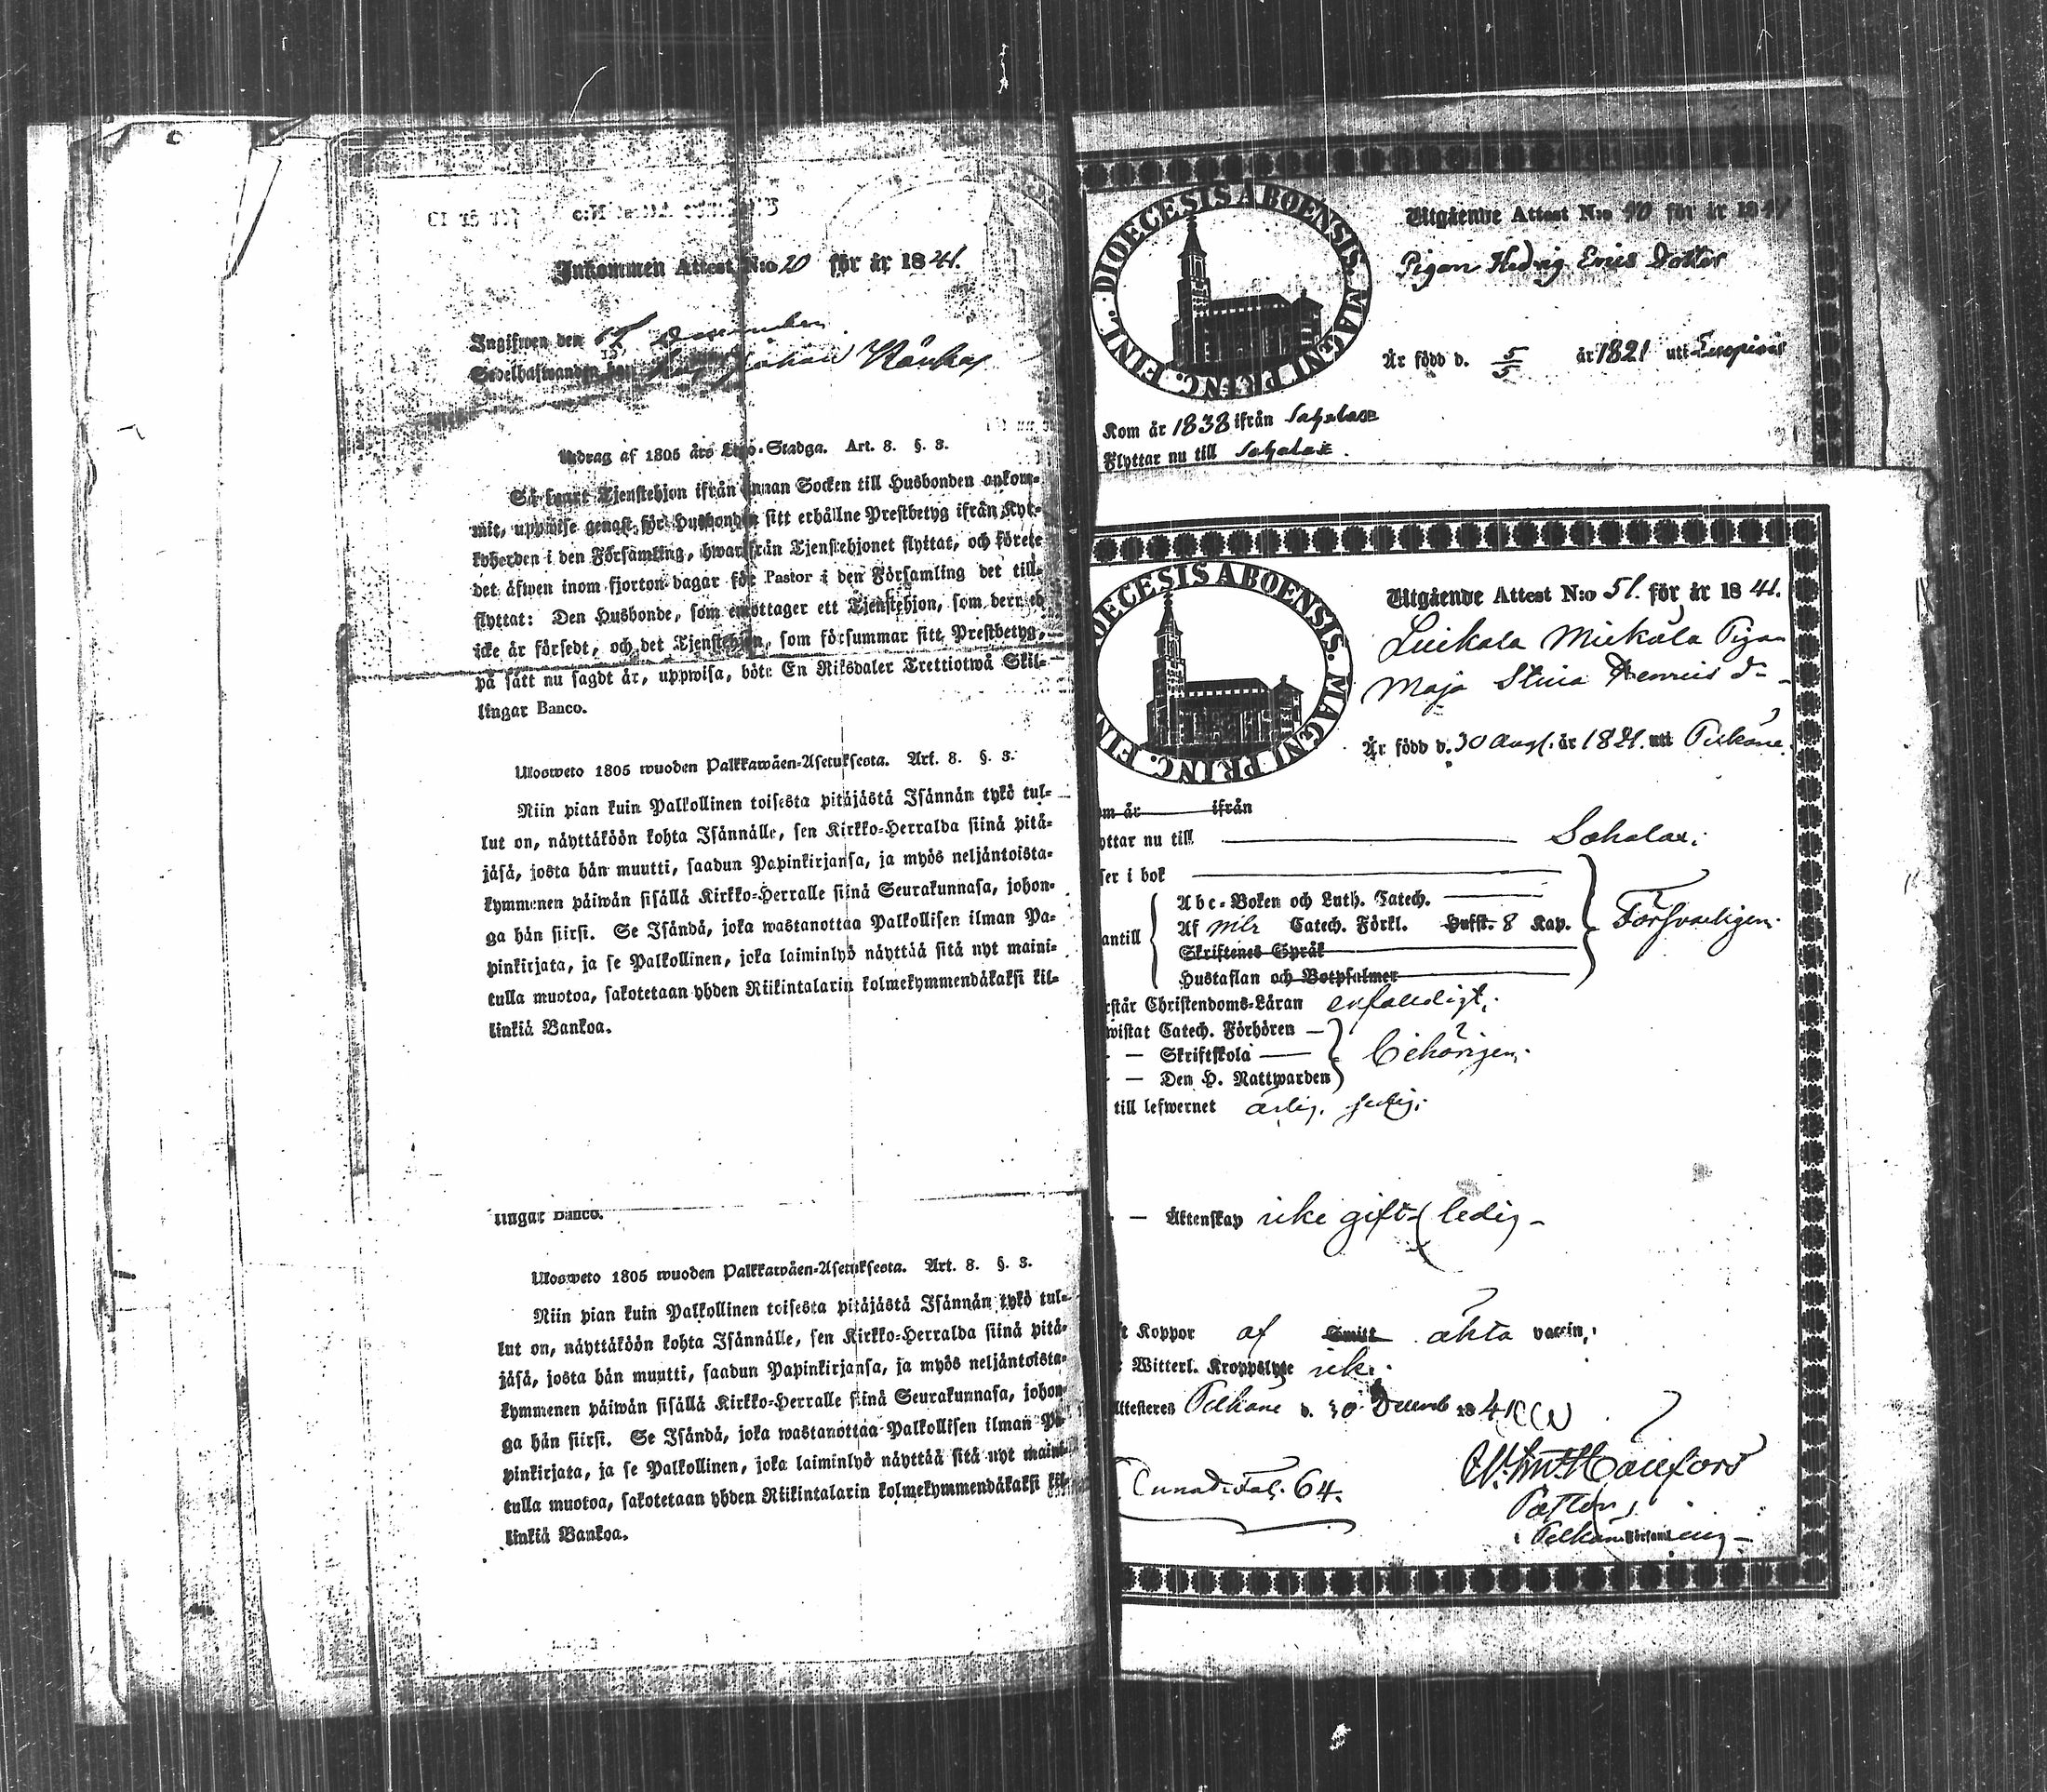 Inkommen Attest N:o 20 för år 1841.
Ingifwen den
Johan
Utdrag af 1805 års Lego-Stadga. Art. 8. §. 3.
Så snart Tjenstehjon ifrån annan Socken till Husbonden ankom-
mit, uppwise genast för Husbonden sitt erhållne Prestbetyg ifrån Kyr-
koherden i den Församling, hwarifrån Tjenstehjonet flyttat, och förete
det äfwen inom fjorton dagar för Pastor i den Församling det till-
flyttat: Den Husbonde, som emottager ett Tjenstehjon, som derr ed
icke är försedt, och det Tjenstehjon, som försummar sitt Prestbetyg,
på sätt nu sagdt är, uppwisa, böte En Riksdaler Trettiotwå Skil-
lingar Banco.
Ulosweto 1805 wuoden Palkkawäen-Asetuksesta. Art. 8. §. 3.
Niin pian kuin Palkollinen toisesta pitäjästä Isännän tykö tul-
lut on, näyttäköön kohta Isännälle, sen Kirkko-Herralda siinä pitä-
jäsä, josta hän muutti, saadun Papinkirjansa, ja myös neljäntoista-
kymmenen päiwän sisällä Kirkko-Herralle siinä Seurakunnasa, johon-
ga hän siirsi. Se Isändä, joka wastanottaa Palkollisen ilman Pa-
pinkirjata, ja se Palkollinen, joka laiminlyö näyttää sitä nyt maini-
tulla muotoa, sakotetaan yhden Riikintalarin kolmekymmendäkaksi kil-
linkiä Bankoa.
lingar Banco.
Ulosweto 1805 wuoden Palkkawäen-Asetuksesta. Art. 8. §. 3.
Niin pian kuin Palkollinen toisesta pitäjästä Isännän tykö tul-
lut on, näyttäköön kohta Isännälle, sen Kirkko-Herralda siinä pitä-
jäsä, josta hän muutti, saadun Papinkirjansa, ja myös neljäntoista-
kymmenen päiwän sisällä Kirkko-Herralle siinä Seurakunnasa, johon-
ga hän siirsi. Se Isändä, joka wastanottaa Palkollisen ilman Pa-
pinkirjata, ja se Palkollinen, joka laiminlyö näyttää sitä nyt maini-
tulla muotoa, sakotetaan yhden Riikintalarin kolmekymmendäkaksi kil-
linkiä Bankoa.
DIOECESIS ABOENSIS. MAGNI PRINC. FINL.
Utgående Attest N:o 40 för år 1841
Pigan Hedvig Erics Dotter
Är född d. 5/5 år 1821 uti
Kom år 1838 ifrån Sahalax
Flyttar nu till Sahalax.
OECESIS ABOENSIS. MAGNI PRINC. FIN
Utgående Attest N:o 51. för år 1841.
Pigan
Maja Stina Henrics d-
Är född d. 30 Aug. år 1821. uti Pelkäne.
om år ifrån
yttar nu till Sahalax.
ser i bok
Abc-Boken och Luth. Catech.
antill Af Catech. Förkl. Hufst. 8 Kap. Försvarligen.
Skriftenes Språk
Hustaflan och Botpsalmer
rstår Christendoms-Läran enfaldigt.
wistat Catech. Förhören
— Skriftskola Behörigen.
— Den H. Nattwarden
till lefwernet ärlig,
— Äktenskap icke gift (ledig -
t Koppor af Smitt äkta vaccin.
Witterl. Kroppslyte icke.
Attesteres Pelkäne d. 30 Decemb 1841
64.
Pastor
i Pelkäne Församling -